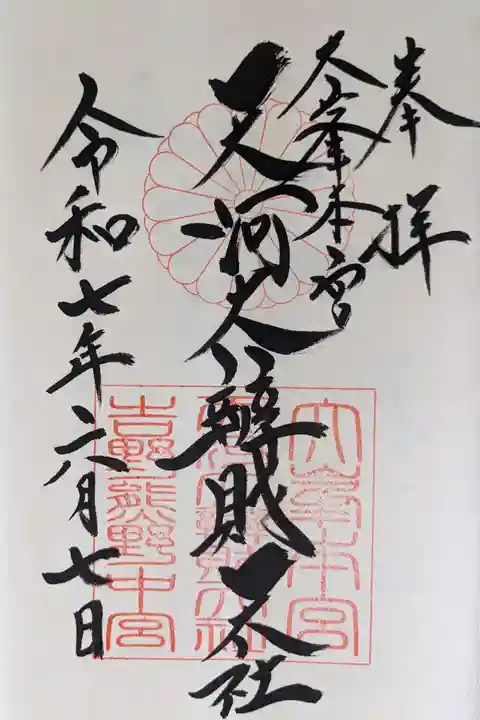 奉拝
大峯本宮
天河大辨財天社
令和七年六月七日
大峯本宮
吉野熊野中宮